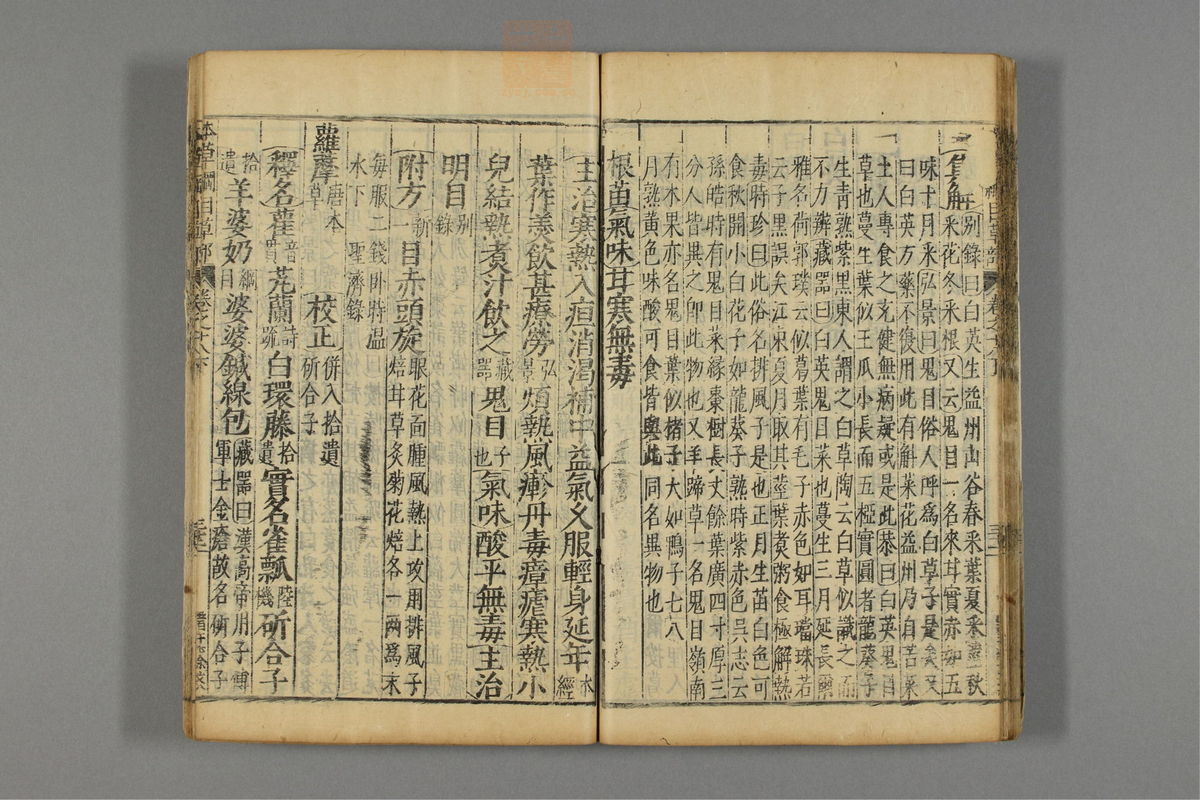 集解
別錄曰白英生益州山谷春采葉夏采莖秋
采花冬采根又云鬼目一名來甘實赤如五
味十月采弘景曰鬼目俗人呼為白草子是矣又
曰白英方藥不復用此有斛菜花益州乃自苦菜
土人專食之充健無病疑或是此恭曰白英鬼目
草也蔓生葉似王瓜小長而五椏實圓若龍葵子
生青熟紫黑東人謂之白草陶云白草似識之而
不力辨藏器曰白英鬼目菜也蔓生三月延長爾
雅名苻郭璞云似葛葉有毛子赤色如耳璫珠若
云子黑誤矣江東夏月取其莖葉煮粥食極解熱
毒時珍曰此俗名排風子是也正月生苗白色可
食秋開小白花子如龍葵子熟時紫赤色吳志云
孫皓時有鬼目菜緣棗樹長丈餘葉廣四寸厚三
分人皆異之即此物也又羊蹄草一名鬼目嶺南
有木果亦名鬼目葉似楮子大如鴨子七八
月熟黃色味酸可食皆與此同名異物也
根苗氣味甘寒無毒
主治寒熱八疸消渴補中益氣久服輕身延年本經
葉作羹飲甚療勞弘景煩熱風疹丹毒瘴瘧寒熱小
兒結熱煮汁飲之藏器鬼目子也氣味酸平無毒主治
明目別錄
附方新一目赤頭旋眼花面腫風熱上攻用排風子
焙甘草炙菊花焙各一兩為末
每服二錢臥時温
水下聖濟錄
蘿藦唐本草 校正併入拾遺
斫合子
釋名雚音貫芄蘭詩疏白環藤拾遺實名雀瓢陸機斫合子
拾遺羊婆奶綱目婆婆鍼線包藏器曰漢高帝用子傅
軍士金瘡故名斫合子
本草綱目草部 卷之十八下